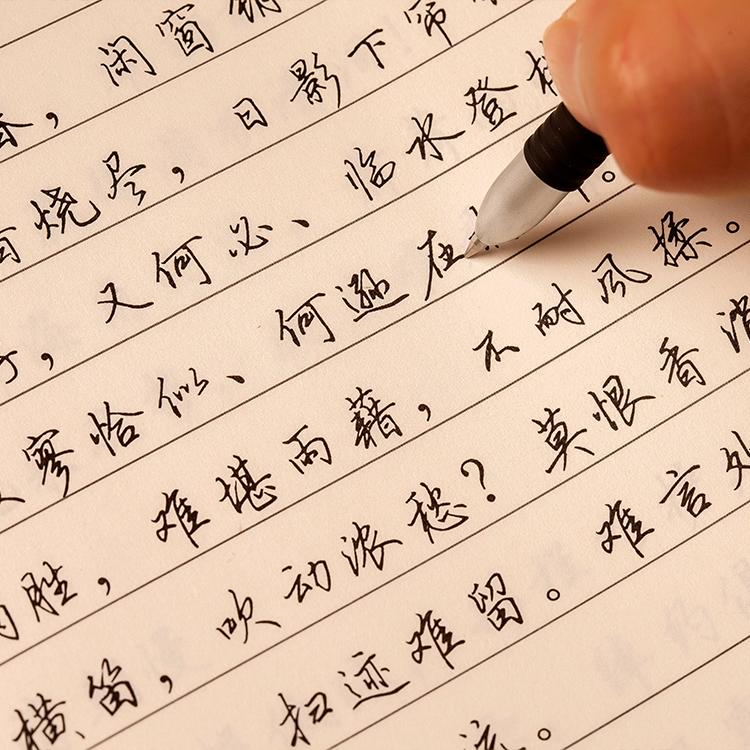 ，闲窗锁
香烧尽，日影下帘
，又何必、临水登
寥恰似、何逊在
胜，难堪雨藉，不耐风揉。
横笛，吹动浓愁？莫恨香消
扫迹难留。难言处
流。